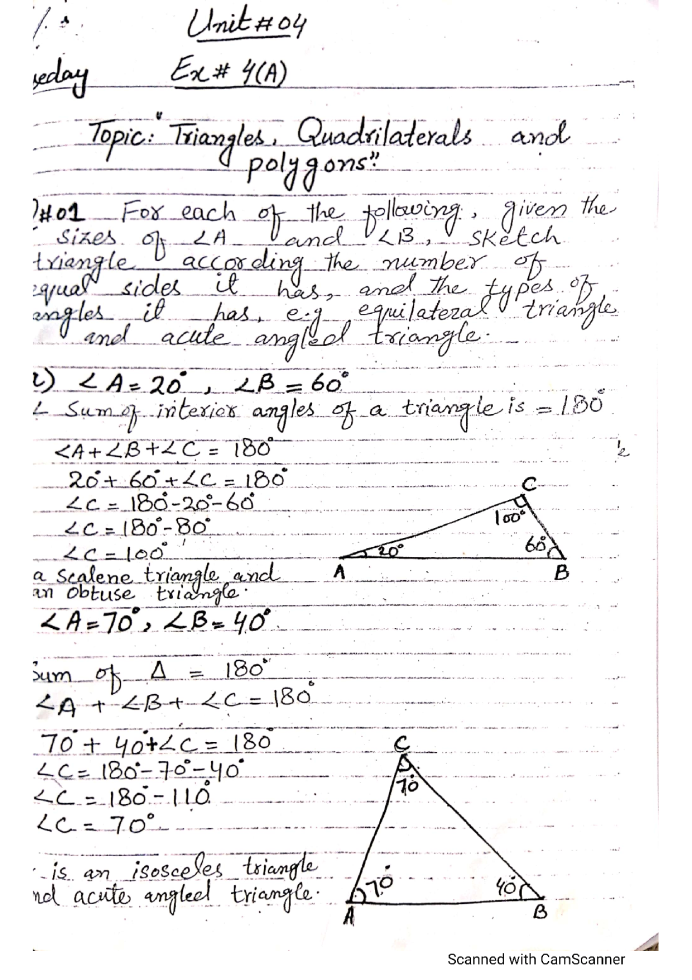 Unit # 04
Ex # 4(A)
Topic: "Triangles, Quadrilaterals and
polygons"
#01 For each of the following, given the
sizes of ∠A and ∠B, sketch
triangle according the number of
equal sides it has, and the types of
angles it has, e.g equilateral triangle
and acute angled triangle.
∠A = 20°, ∠B = 60°
∠ Sum of interior angles of a triangle is = 180
∠A + ∠B + ∠C = 180°
20° + 60° + ∠C = 180°
∠C = 180° - 20° - 60°
∠C = 180° - 80°
∠C = 100°
a Scalene triangle and
an obtuse triangle.
C
100°
20°
60°
A
B
∠A = 70°, ∠B = 40°
Sum of Δ = 180°
∠A + ∠B + ∠C = 180°
70° + 40° + ∠C = 180°
∠C = 180° - 70° - 40°
∠C = 180° - 110°
∠C = 70°
is an isosceles triangle
nd acute angled triangle.
C
70°
70°
40°
A
B
Scanned with CamScanner